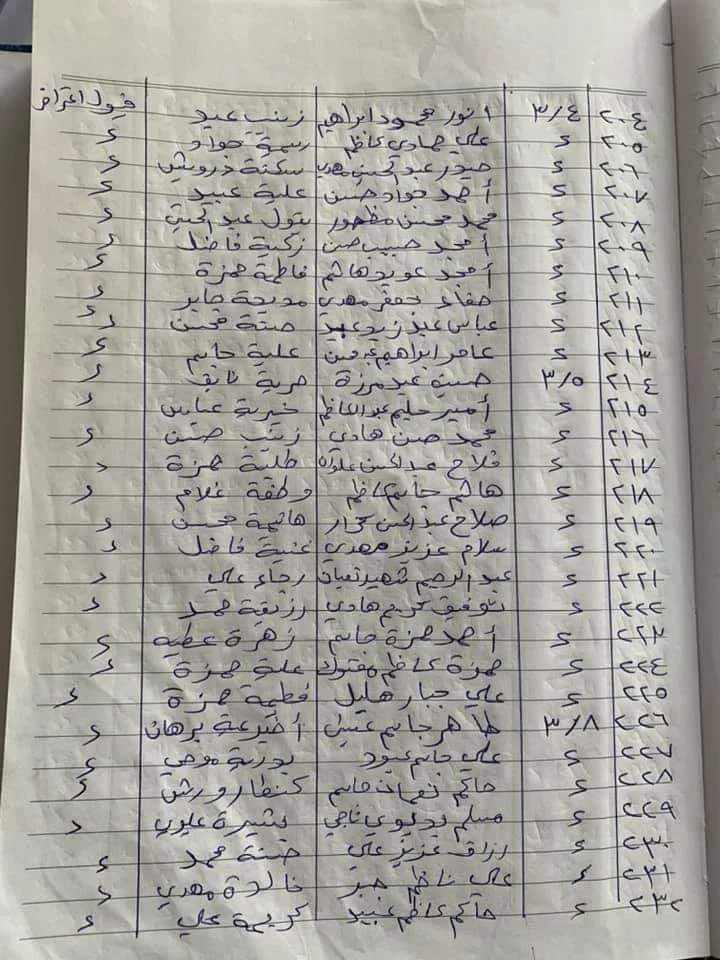 ٢٠٤ ٣/٤ أنور محمود ابراهيم زينب عيد قبول اعتراض
٢٠٥ ء علي حمادي كاظم رسمية جواد ء
٢٠٦ ء حيدر عبد الحسين مهدي سكنة درويش ء
٢٠٧ ء أحمد جواد حسن علية عبيد ء
٢٠٨ ء محمد محسن مظهور بتول عبد الحسين ء
٢٠٩ ء أمجد حبيب حسن زكية فاضل ء
٢١٠ ء أمجد عويد هاشم فاطمة حمزة ء
٢١١ ء صفاء جعفر مهدي مديحة جابر ء
٢١٢ ء عباس عبد زيد عبيد حسنة محسن ء
٢١٣ ء عامر ابراهيم علية جاسم ء
٢١٤ ٣/٥ حسين عبد مرزة حرية نايف ء
٢١٥ ء أمير حليم عبد الكاظم خيرية عباس ء
٢١٦ ء محمد حسن هادي زينب حسن ء
٢١٧ ء فلاح عبد الحسن طلبة حمزة ء
٢١٨ ء هاشم جاسم كاظم وطفة غلام ء
٢١٩ ء صلاح عبد الحسن هاشمية محسن ء
٢٢٠ ء سلام عزيز مهدي غنية فاضل ء
٢٢١ ء عبد الرحيم شهيد نعمان رجاء علي ء
٢٢٢ ء توفيق كريم هادي رزيقة حمد ء
٢٢٣ ء أحمد حمزة جاسم زهرة عطيه ء
٢٢٤ ء حمزة كاظم علية حمزة ء
٢٢٥ ء علي جبار هليل فطيمة حمزة ء
٢٢٦ ٣/٨ طاهر جاسم برهان ء
٢٢٧ ء علي جاسم عبود بدرية موحي ء
٢٢٨ ء حاكم نعمان جاسم ء
٢٢٩ ء مسلم بديوي ناجي بشيرة عليوي ء
٢٣٠ ء رزاق عزيز علي حسنة محمد ء
٢٣١ ء علي ناظم جبر خالدة مهدي ء
٢٣٢ ء حاكم كاظم عبيد كريمة علي ء